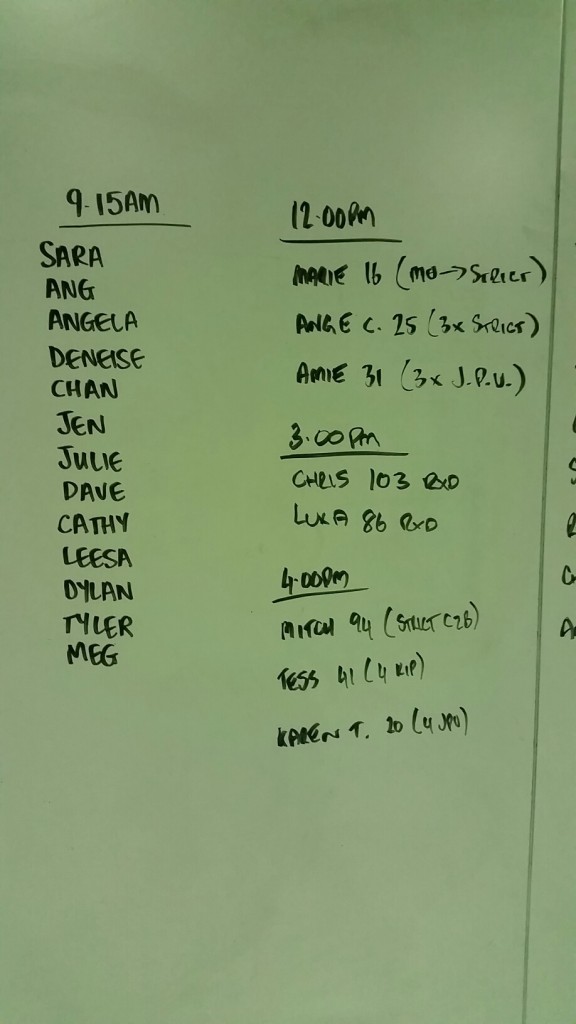 9.15AM
SARA
ANG
ANGELA
DENEISE
CHAN
JEN
JULIE
DAVE
CATHY
LEESA
DYLAN
TYLER
MEG
12.00PM
MARIE 16 (MB→STRICT)
ANGE C. 25 (3x STRICT)
AMIE 31 (3x J.P.U.)
3.00PM
CHRIS 103 RXD
LUKA 86 RXD
4.00PM
MITCH 94 (STRICT C2B)
TESS 41 (4 KIP)
KAREN T. 20 (4 JPU)